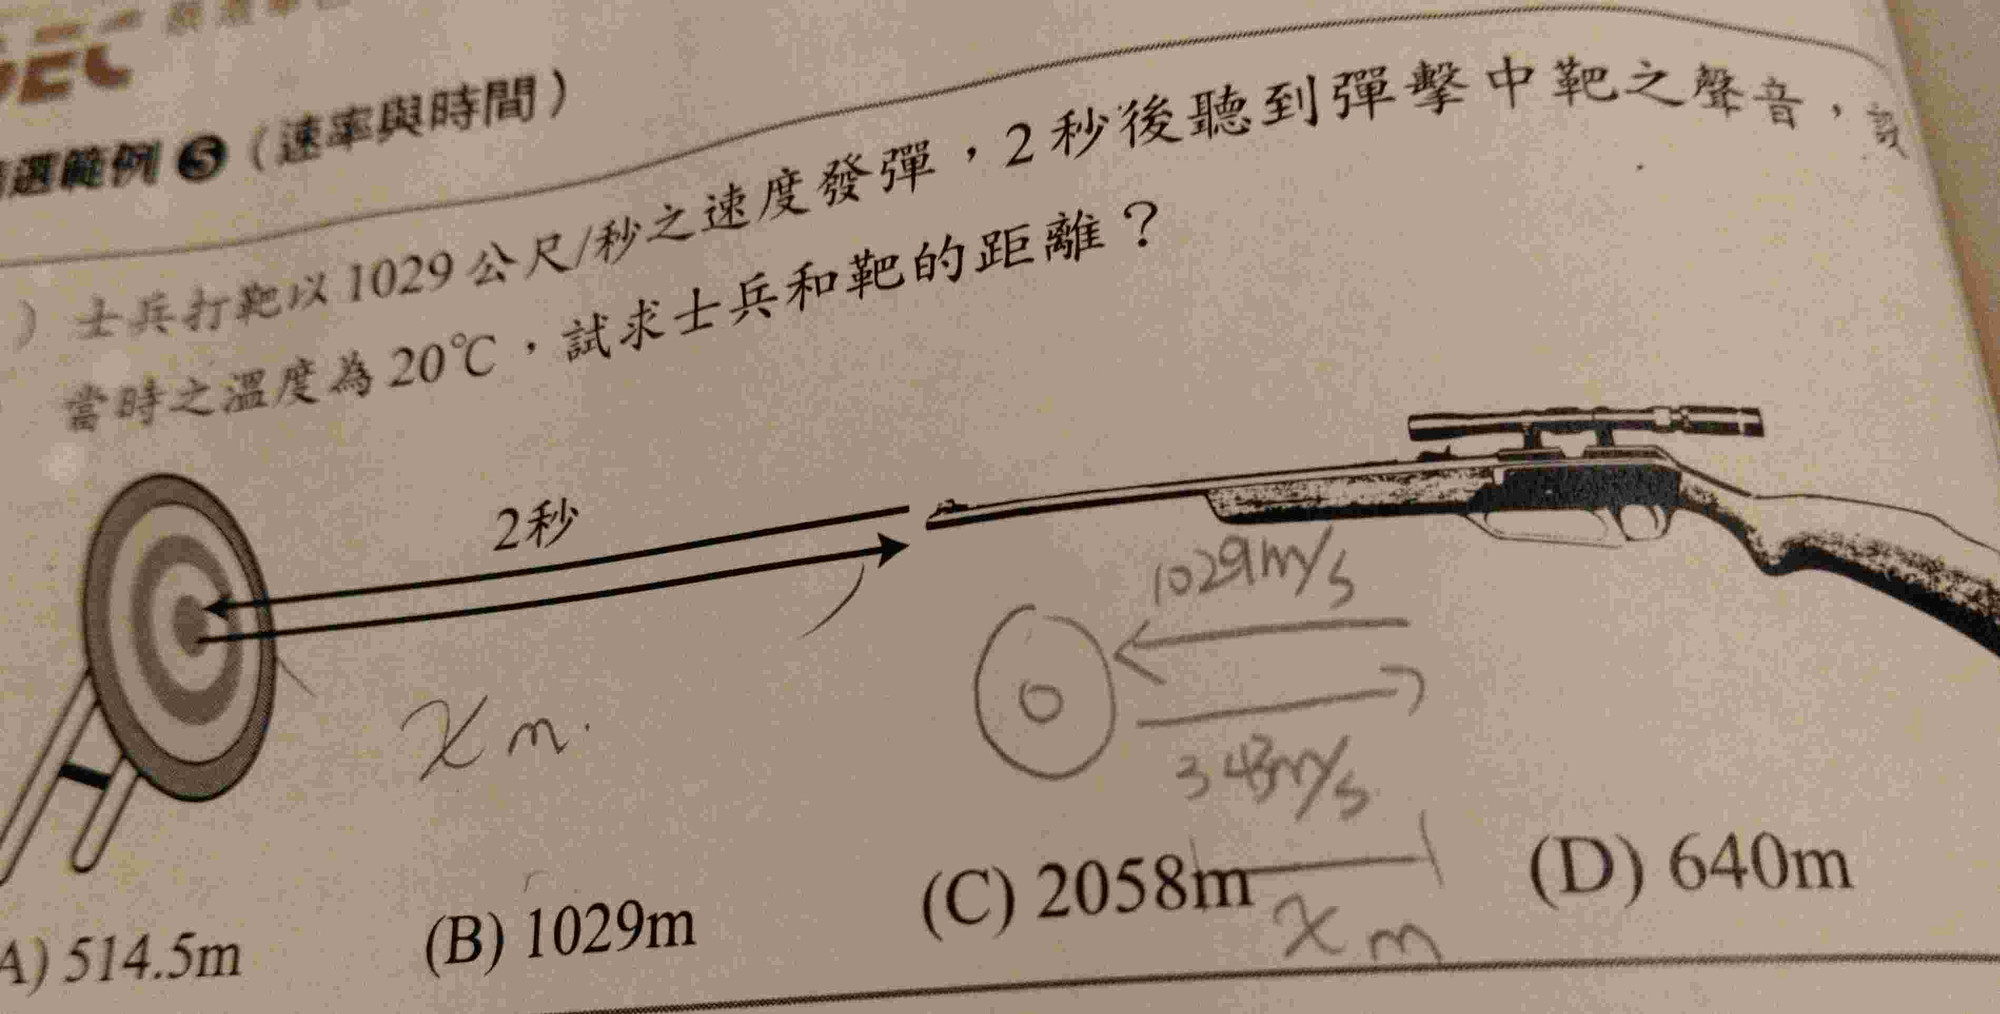 範例 5（速率與時間）
）士兵打靶以 1029 公尺/秒之速度發彈，2 秒後聽到彈擊中靶之聲音，設
當時之溫度為 20℃，試求士兵和靶的距離？
2秒
1029m/s
x m.
343m/s
A) 514.5m (B) 1029m (C) 2058m (D) 640m
x m